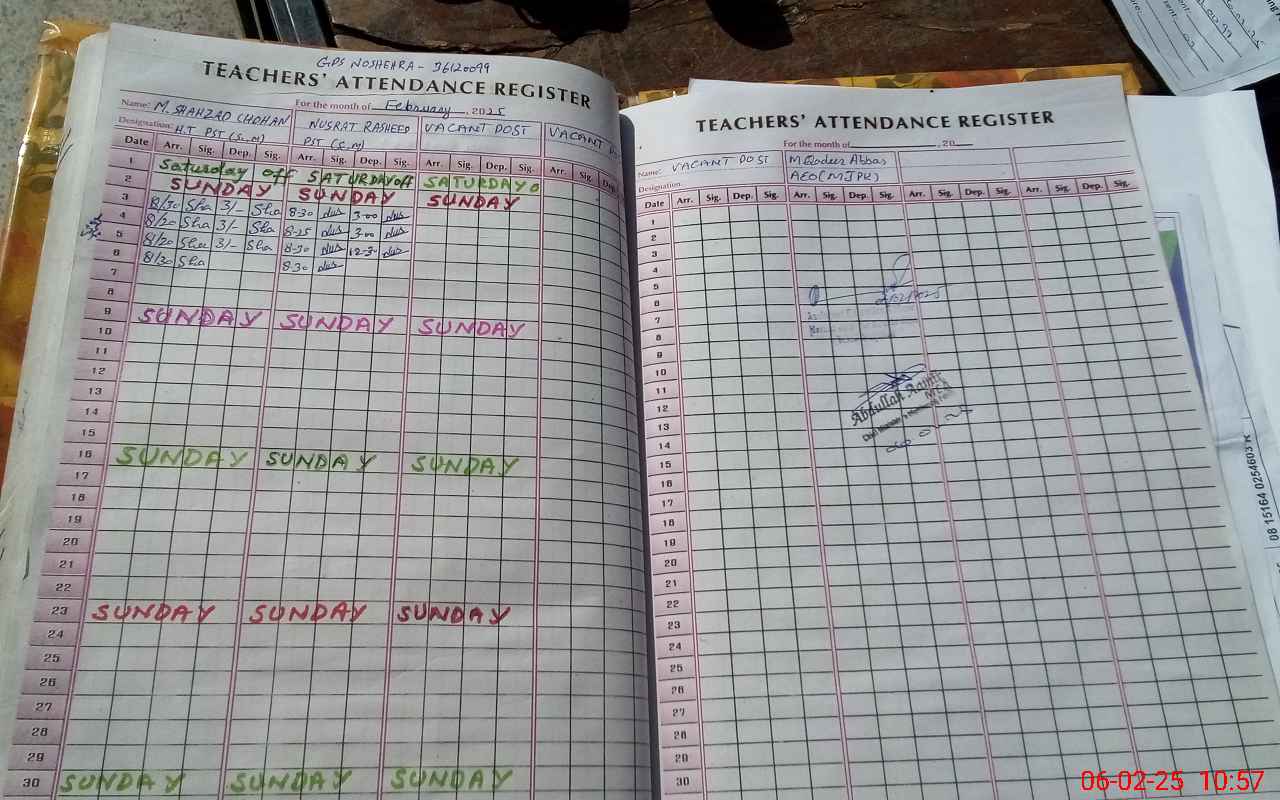 GPS NOSHEHRA - 36120099
TEACHERS' ATTENDANCE REGISTER
Name: M. SHAHZAD CHOHAN For the month of February, 2025
NUSRAT RASHEED VACANT POST VACANT
Designation: H.T PST (S.M) PST (S.M)
Date Arr. Sig. Dep. Sig. Arr. Sig. Dep. Sig. Arr. Sig. Dep. Sig. Arr. Sig. Dep
1 Saturday off SATURDAY off SATURDAY o
2 SUNDAY SUNDAY SUNDAY
3 8/30 Sha 3/- Sha 8-30 3-00
4 8/20 Sha 3/- Sha 8-25 3-00
5 8/20 Sha 3/- Sha 8-30 12-3
6 8/30 Sha 8-30
7
8
9 SUNDAY SUNDAY SUNDAY
10
11
12
13
14
15
16 SUNDAY SUNDAY SUNDAY
17
18
19
20
21
22
23 SUNDAY SUNDAY SUNDAY
24
25
26
27
28
29
30 SUNDAY SUNDAY SUNDAY
TEACHERS' ATTENDANCE REGISTER
For the month of , 20
Name: VACANT POST M Qadeer Abbas
Designation: AEO (MJPR)
Date Arr. Sig. Dep. Sig. Arr. Sig. Dep. Sig. Arr. Sig. Dep. Sig. Arr. Sig. Dep. Sig.
1
2
3
4
5
6
7
8
9
10
11
12
13
14
15
16
17
18
19
20
21
22
23
24
25
26
27
28
29
30
Abdullah Aamir
08 15164 0254603
06-02-25 10:57